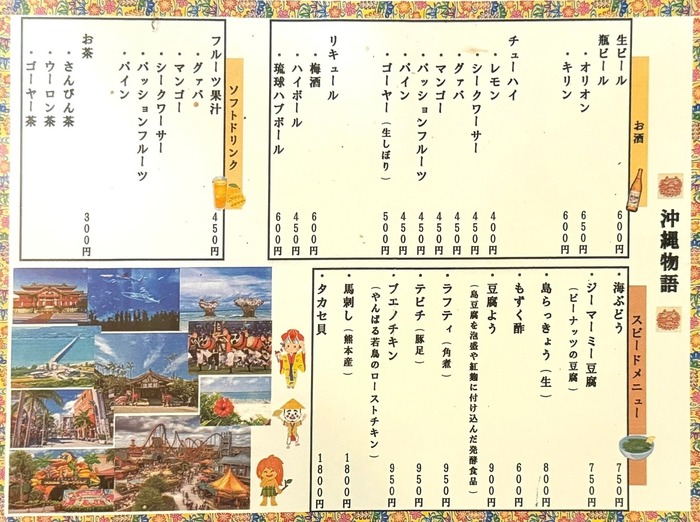 沖縄物語
お酒
生ビール 600円
瓶ビール
・オリオン 650円
・キリン 600円
チューハイ
・レモン 400円
・シークワーサー 450円
・グァバ 450円
・マンゴー 450円
・パッションフルーツ 450円
・パイン 450円
・ゴーヤー(生しぼり) 500円
リキュール
・梅酒 600円
・ハイボール 450円
・琉球ハブボール 600円
ソフトドリンク
フルーツ果汁 450円
・グァバ
・マンゴー
・シークワーサー
・パッションフルーツ
・パイン
お茶 300円
・さんぴん茶
・ウーロン茶
・ゴーヤー茶
スピードメニュー
・海ぶどう 750円
・ジーマーミー豆腐 750円
(ピーナッツの豆腐)
・島らっきょう(生) 800円
・もずく酢 600円
・豆腐よう 900円
(島豆腐を泡盛や紅麹に付け込んだ発酵食品)
・ラフティ(角煮) 950円
・テビチ(豚足) 950円
・ブエノチキン 950円
(やんばる若鳥のローストチキン)
・馬刺し(熊本産) 1800円
・タカセ貝 1800円